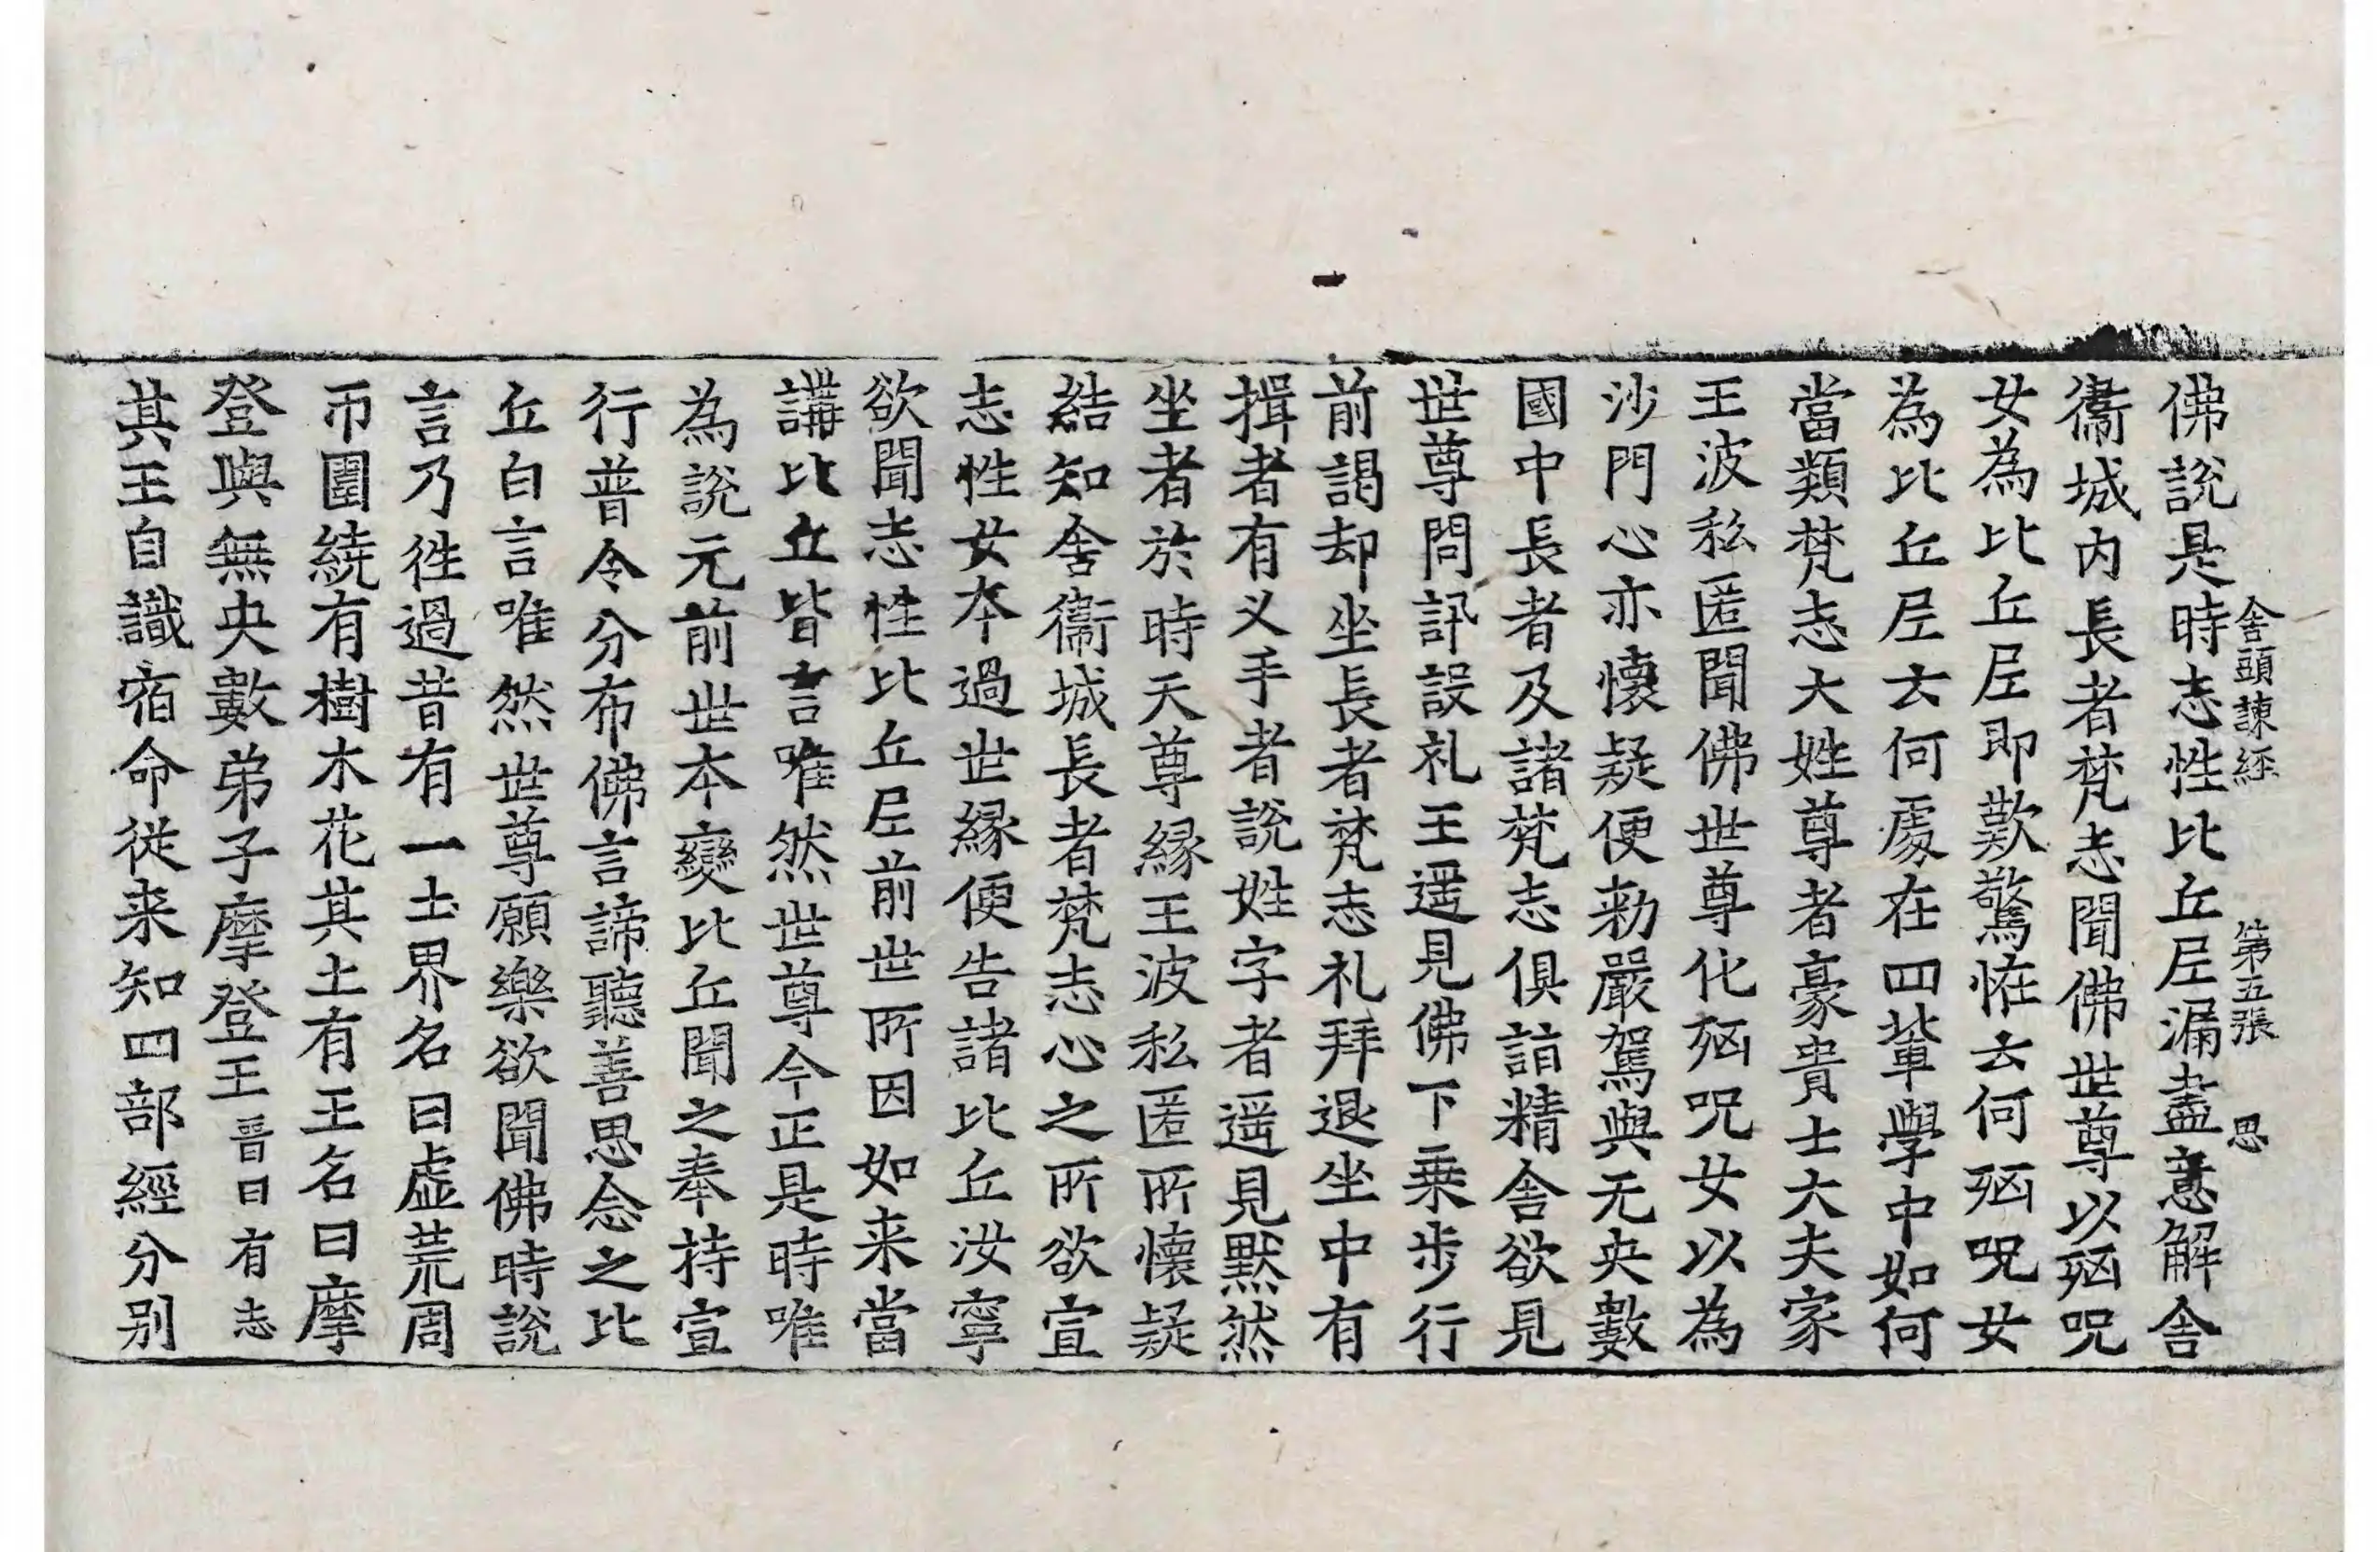 舎頭諫經　第五張　思
佛說是時志性比丘尼漏盡意解舎
衞城内長者梵志聞佛世尊以㐫呪
女為比丘尼即歎驚恠云何㐫呪女
為比丘尼云何處在四輩學中如何
當類梵志大姓尊者豪貴士大夫家
王波私匿聞佛世尊化㐫呪女以為
沙門心亦懷疑便勑嚴駕與无央數
國中長者及諸梵志俱詣精舎欲見
世尊問訊設礼王遥見佛下乗步行
前謁却坐長者梵志礼拜退坐中有
揖者有义手者說姓字者遥見默然
坐者於時天尊縁王波私匿所懷疑
結知舎衞城長者梵志心之所欲宣
志性女本過世縁便告諸比丘汝寧
欲聞志性比丘尼前世所因如来當
講比丘皆言唯然世尊今正是時唯
為說元前世本變比丘聞之奉持宣
行普令分布佛言諦聽善思念之比
丘白言唯然世尊願樂欲聞佛時說
言乃徃過昔有一土界名曰虛荒周
帀圍繞有樹木花其土有王名曰摩
登與無央數弟子摩登王晉曰有志
其王自識宿命從来知四部經分别